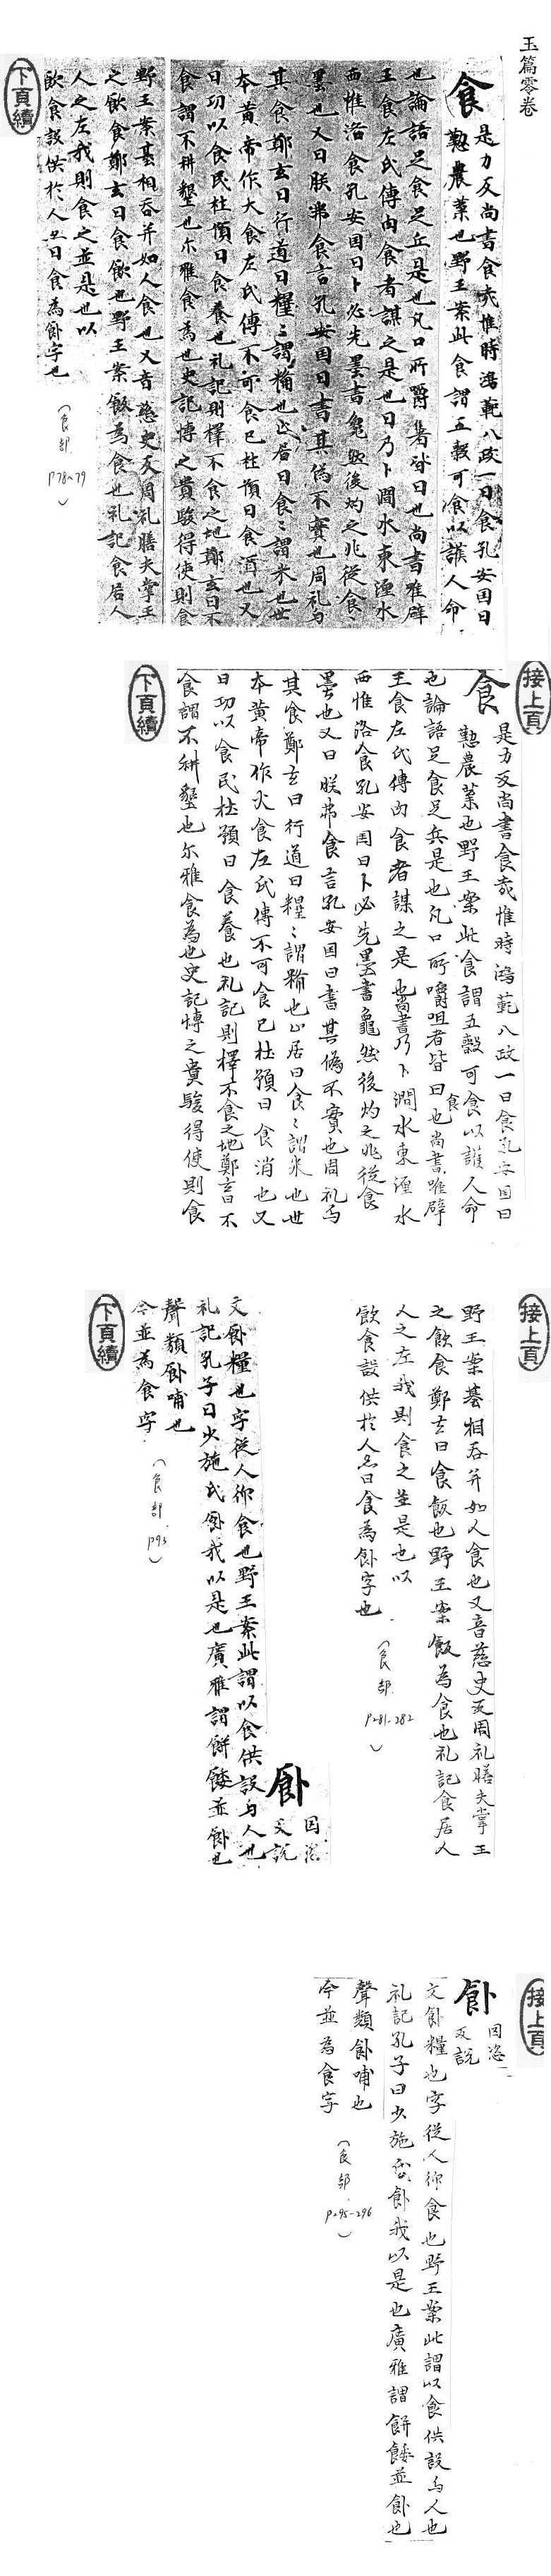 玉篇零卷
食
是力反尚書食哉惟時鴻範八政一曰食孔安囯曰
懃農業也野王案此食謂五穀可食以護人命
也論語足食足丘是也凡口所嚼著皆曰也尚書唯辟
王食左氏傳肉食者謀之是也曰乃卜澗水東湹水
西惟洛食孔安囯曰卜必先墨書龜然後灼之兆從食〻
墨也又曰朕弗食言孔安囯曰書其偽不實也周礼与
其食鄭玄曰行道曰糧〻謂糒也止居曰食〻謂米也世
本黄帝作火食左氏傳不可食已杜預曰食消也又
曰功以食民杜預曰食養也礼記則擇不食之地鄭玄曰不
食謂不耕墾也尓雅食為也史記愽之貴駿得使則食
下頁續
野王案甚相吞并如人食也又音慈史反周礼膳夫掌王
之飲食鄭玄曰食飯也野王案飯為食也礼記食居人
人之左我則食之並是也以
飲食設供於人亦曰食為飤字也
(食部 P78~79)
接上頁
食
是力反尚書食哉惟時鴻範八政一曰食孔安囯曰
懃農業也野王案此食謂五穀可食以護人命
也論語足食足兵是也凡口所嚼咀者皆曰食也尚書唯辟
王食左氏傳肉食者謀之是也尚書乃卜澗水東湹水
西惟洛食孔安囯曰卜必先墨書龜然後灼之兆從食
墨也又曰朕弗食言孔安囯曰書其偽不實也周礼与
其食鄭玄曰行道曰糧〻謂糒也止居曰食〻謂米也世
本黄帝作火食左氏傳不可食已杜預曰食消也又
曰功以食民杜預曰食養也礼記則擇不食之地鄭玄曰不
食謂不耕墾也尓雅食為也史記愽之貴駿得使則食
下頁續
接上頁
野王案甚相吞并如人食也又音慈史反周礼膳夫掌王
之飲食鄭玄曰食飯也野王案飯為食也礼記食居人
人之左我則食之並是也以
飲食設供於人亦曰食為飤字也
(食部 P281-282)
飤
囙恣
反說
文飤糧也字從人仰食也野王案此謂以食供設与人也
礼記孔子曰少施氏飤我以是也廣雅謂餅餧並飤也
聲類飤哺也
今並為食字
(食部 P93)
下頁續
接上頁
飤
囙恣
反說
文飤糧也字從人仰食也野王案此謂以食供設与人也
礼記孔子曰少施氏飤我以是也廣雅謂餅餧並飤也
聲類飤哺也
今並為食字
(食部 P295-296)